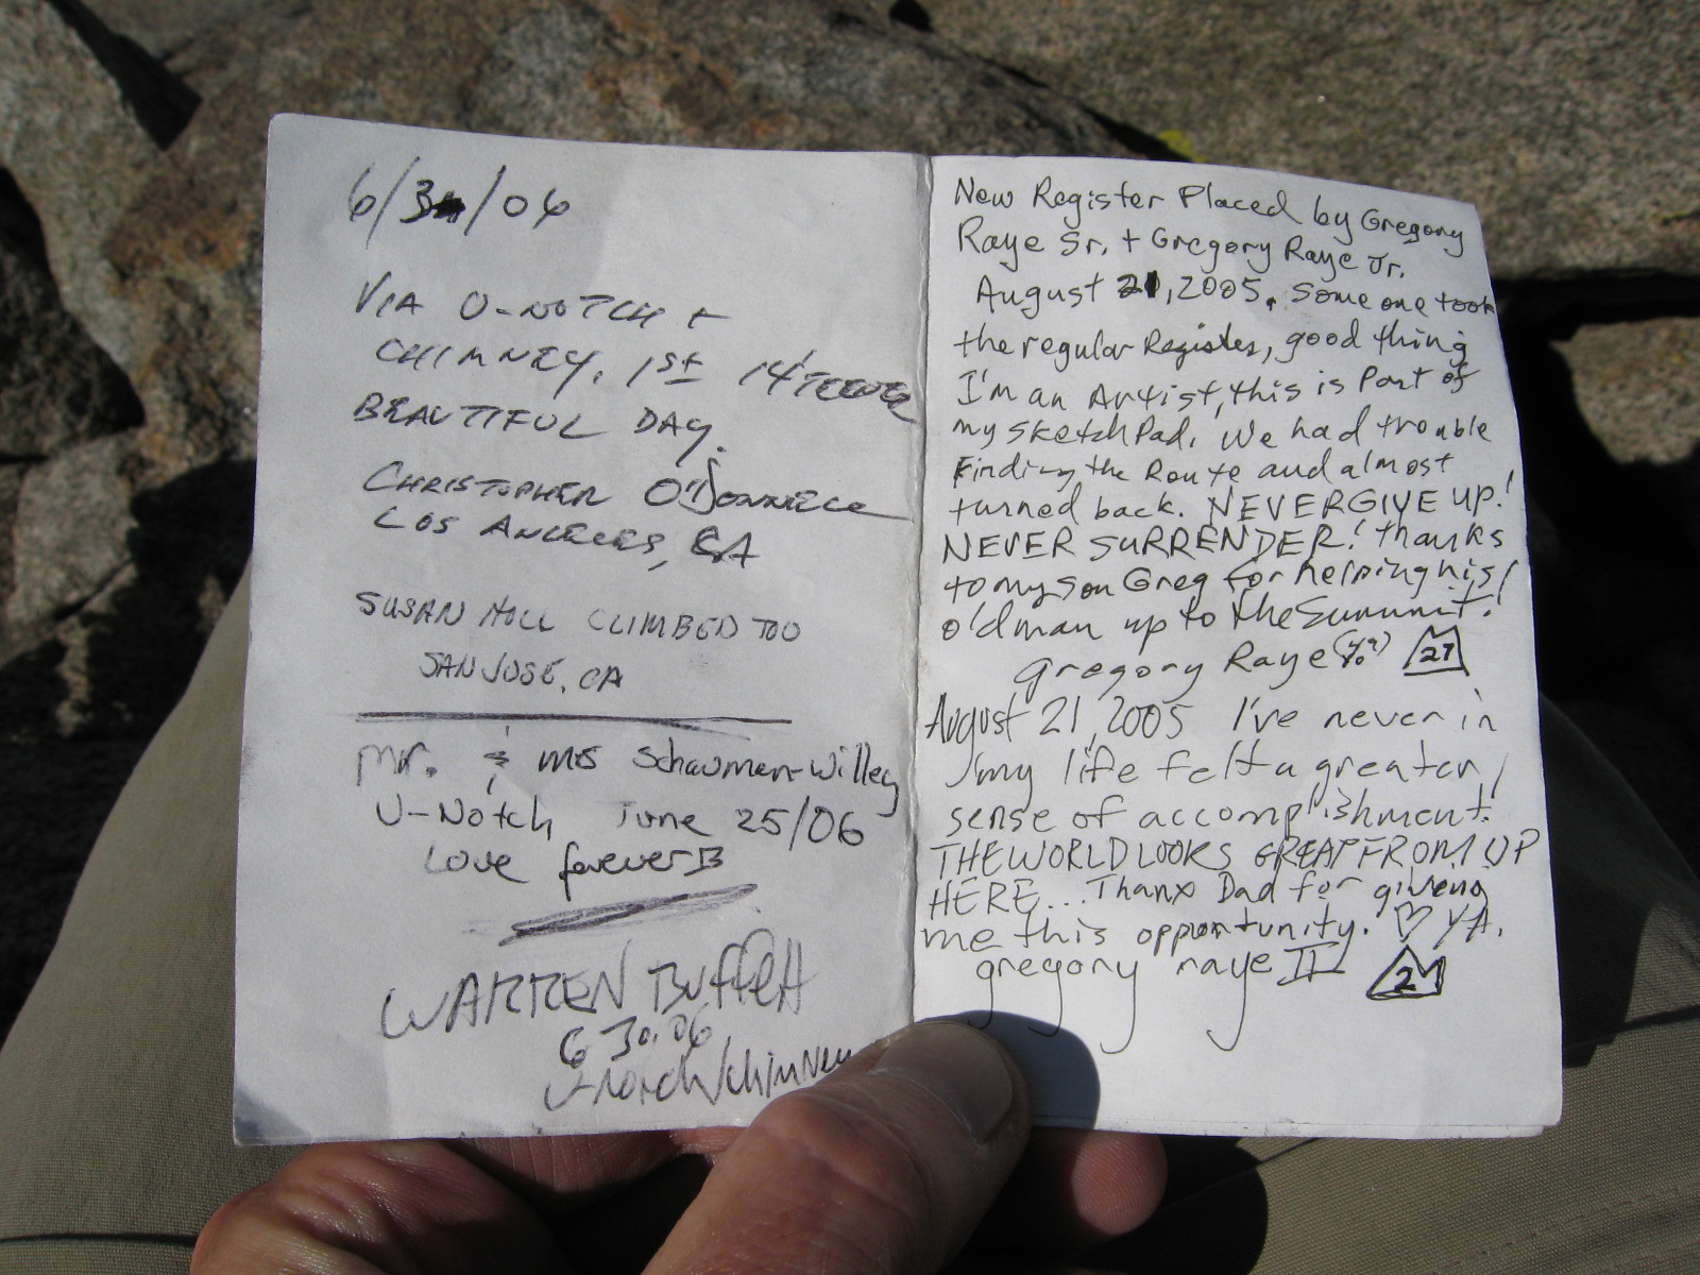 6/3/06
VIA U-NOTCH +
CHIMNEY. 1st 14'TEENER
BEAUTIFUL DAY.
CHRISTOPHER O'DONNELL
LOS ANGELES, CA
SUSAN HOLL CLIMBED TOO
SAN JOSE, CA
Mr. & Mrs Schauman-Willey
U-Notch June 25/06
Love forever
WARREN Buffett
6 30.06
U-Notch/chimney
New Register Placed by Gregory
Raye Sr. + Gregory Raye Jr.
August 21, 2005. Someone took
the regular Register, good thing
I'm an Artist, this is Part of
my sketch Pad. We had trouble
Finding the Route and almost
turned back. NEVER GIVE UP!
NEVER SURRENDER! thanks
to my son Greg for helping his
old man up to the Summit!
Gregory Raye 27
August 21, 2005 I've never in
my life felt a greater
sense of accomplishment!
THE WORLD LOOKS GREAT FROM UP
HERE... Thanx Dad for giving
me this opportunity. ♡ YA.
gregory raye II 2